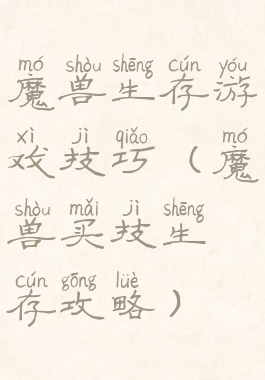 mó shòu shēng cún yóu
魔兽生存游
xì jì qiǎo mó
戏技巧（魔
shòu mǎi jì shēng
兽买技生
cún gōng lüè
存攻略）